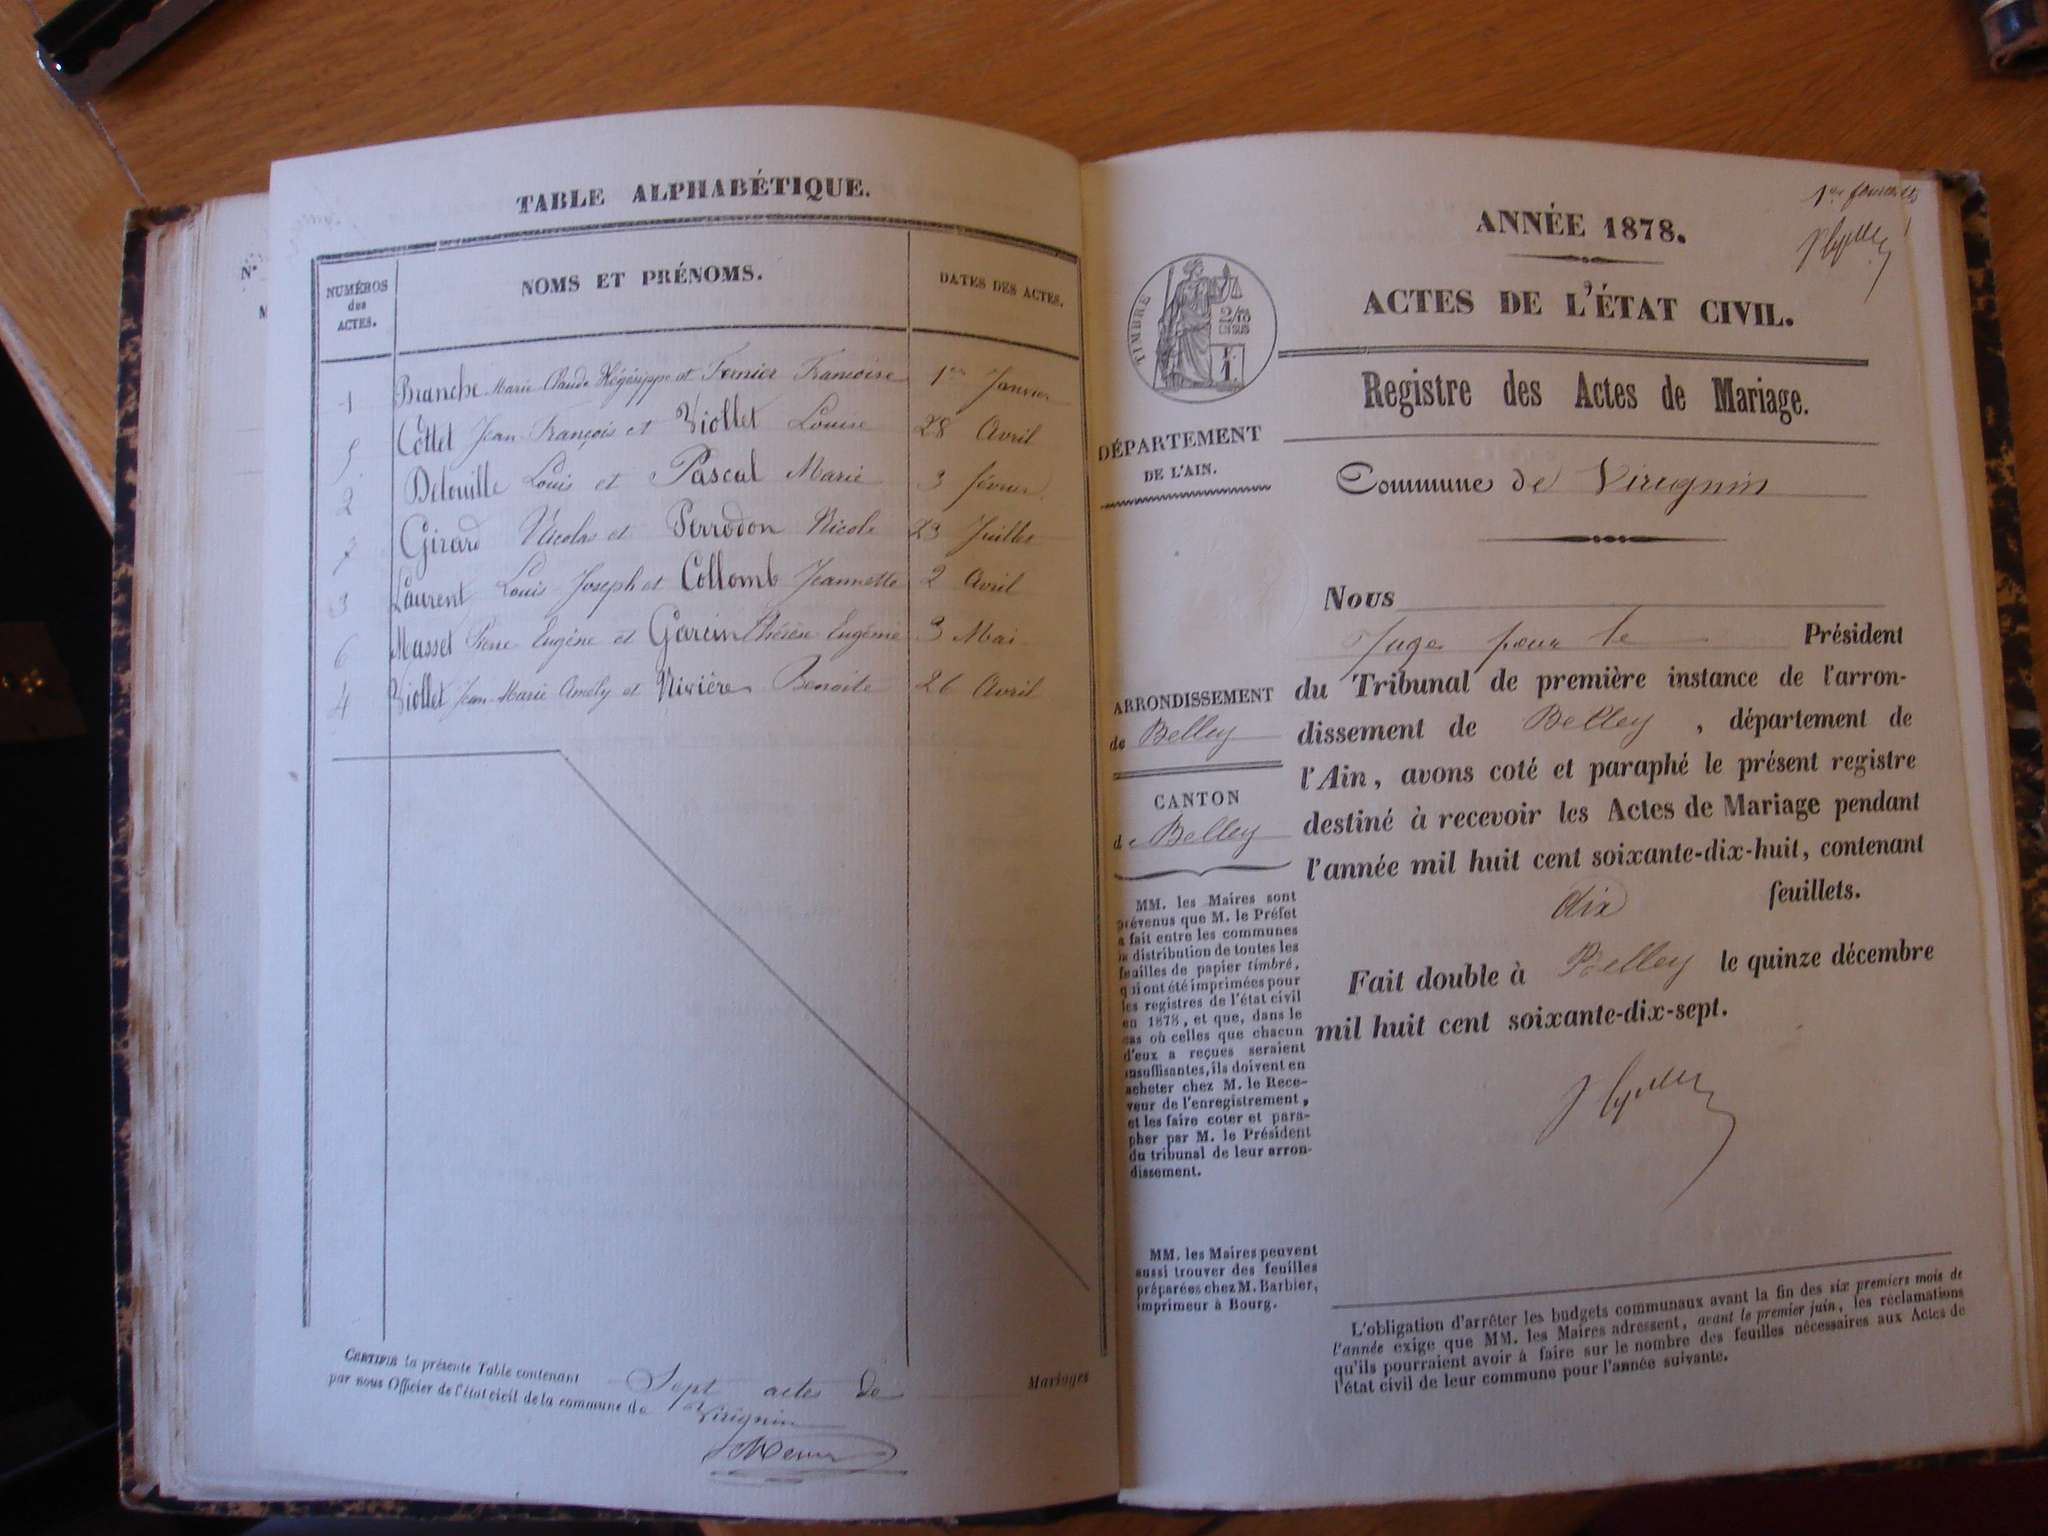 N°
M
TABLE ALPHABÉTIQUE.
NUMÉROS
des
ACTES.
NOMS ET PRÉNOMS.
DATES DES ACTES.
1 Branche Marie Claude Hégésippe et Fernier Francoise 1er Janvier
5 Cottet Jean François et Viollet Louise 28 Avril
2 Delouille Louis et Pascal Marie 3 février
7 Girard Nicolas et Perrodon Nicole 23 Juillet
3 Laurent Louis Joseph et Collomb Jeannette 2 Avril
6 Masset Pierre Eugène et Garcin Thérèse Eugénie 3 Mai
4 Viollet Jean Marie Amély et Rivière Benoite 26 Avril
CERTIFIÉ la présente Table contenant Sept actes de Mariages
par nous Officier de l'état civil de la commune de Virignin
ANNÉE 1878.
ACTES DE L'ÉTAT CIVIL.
TIMBRE
2/10
EN SUS
Registre des Actes de Mariage.
DÉPARTEMENT
DE L'AIN.
Commune de Virignin
Nous
Juge pour le Président
du Tribunal de première instance de l'arron-
dissement de Belley, département de
l'Ain, avons coté et paraphé le présent registre
destiné à recevoir les Actes de Mariage pendant
l'année mil huit cent soixante-dix-huit, contenant
dix feuillets.
Fait double à Belley le quinze décembre
mil huit cent soixante-dix-sept.
ARRONDISSEMENT
de Belley
CANTON
de Belley
MM. les Maires sont
prévenus que M. le Préfet
a fait entre les communes
la distribution de toutes les
feuilles de papier timbré,
qui ont été imprimées pour
les registres de l'état civil
en 1878, et que, dans le
cas où celles que chacun
d'eux a reçues seraient
insuffisantes, ils doivent en
acheter chez M. le Rece-
veur de l'enregistrement,
et les faire coter et para-
pher par M. le Président
du tribunal de leur arron-
dissement.
MM. les Maires peuvent
aussi trouver des feuilles
préparées chez M. Barbier,
imprimeur à Bourg.
L'obligation d'arrêter les budgets communaux avant la fin des six premiers mois de
l'année exige que MM. les Maires adressent, avant le premier juin, les réclamations
qu'ils pourraient avoir à faire sur le nombre des feuilles nécessaires aux Actes de
l'état civil de leur commune pour l'année suivante.